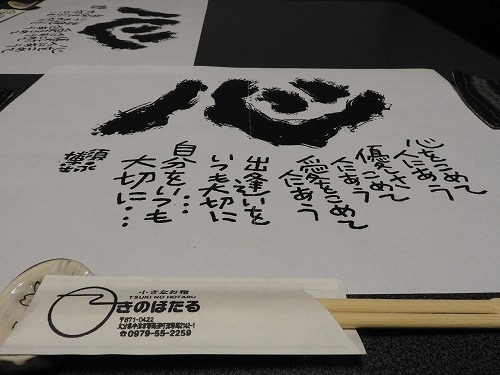 心
心をこめて
人にあう
優しさこめて
人にあう
愛をこめて
人にあう
出逢いを
いつも大切に
自分をいつも…
大切に…
小さなお宿
TSUKI NO HOTARU
つきのほたる
〒871-0422
☎0979-55-2259